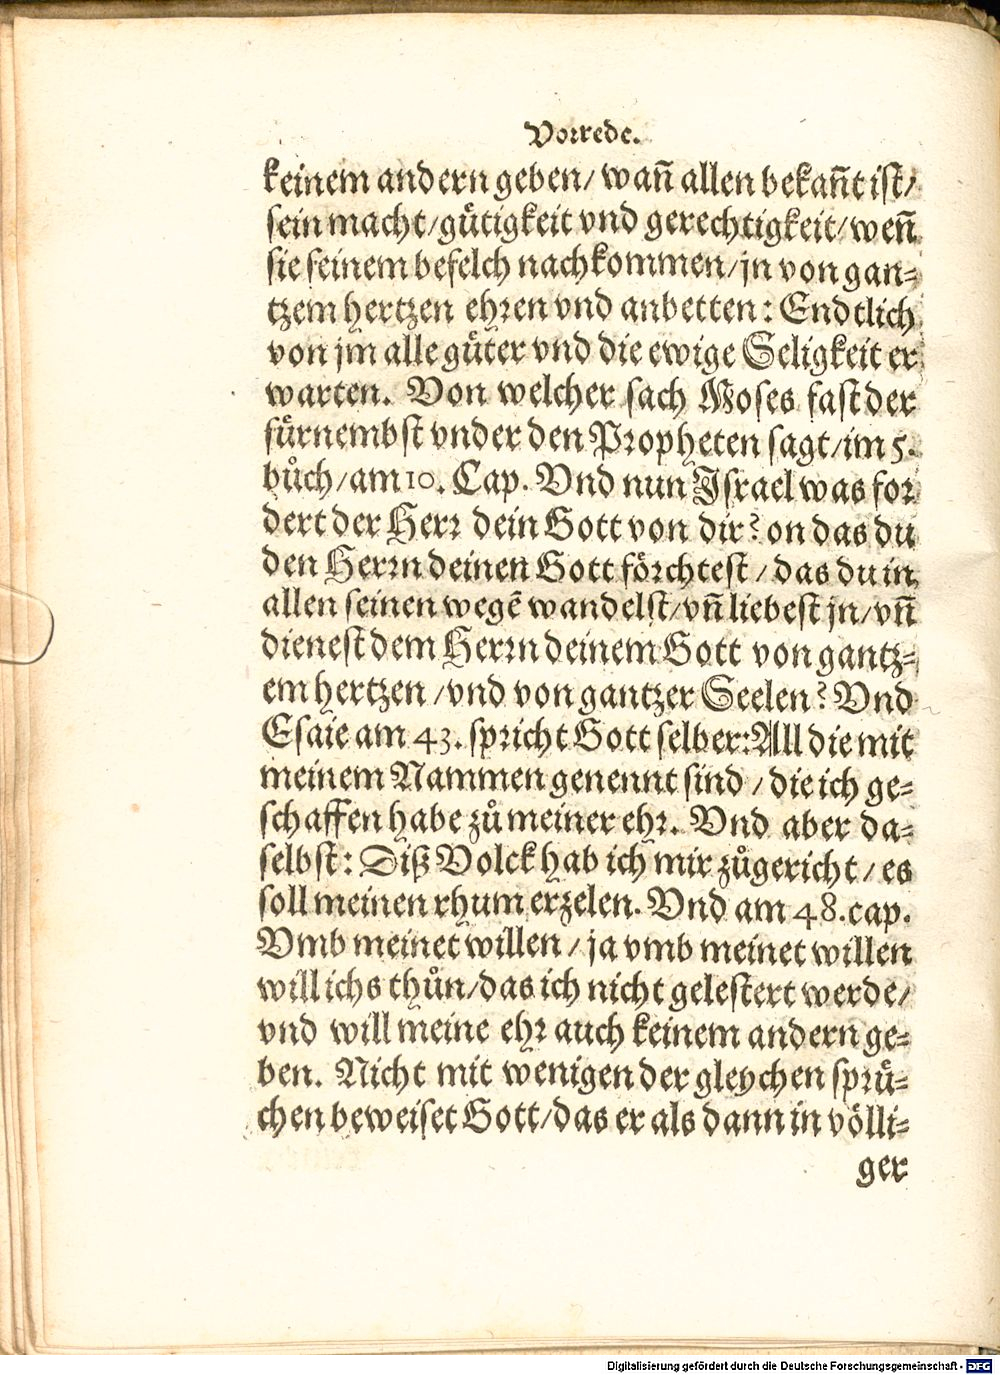 Vorrede.
keinem andern geben/ wañ allen bekañt ist/
sein macht/gütigkeit vnd gerechtigkeit/weñ
sie seinem befelch nachkommen/jn von gan-
tzem hertzen ehren vnd anbetten: Endtlich
von jm alle güter vnd die ewige Seligkeit er
warten. Von welcher sach Moses fast der
fürnembst vnder den Propheten sagt/im 5.
bůch/am 10. Cap. Vnd nun Israel was for
dert der Herr dein Gott von dir? on das du
den Herrn deinen Gott förchtest / das du in
allen seinen wegẽ wandelst/vñ liebest jn/vñ
dienest dem Herrn deinem Gott von gantz-
em hertzen /vnd von gantzer Seelen? Vnd
Esaie am 43. spricht Gott selber: All die mit
meinem Nammen genennt sind / die ich ge-
schaffen habe zů meiner ehr. Vnd aber da-
selbst: Diß Volck hab ich mir zůgericht / es
soll meinen rhum erzelen. Vnd am 48. cap.
Vmb meinet willen / ja vmb meinet willen
will ichs thůn/das ich nicht gelestert werde/
vnd will meine ehr auch keinem andern ge-
ben. Nicht mit wenigen der gleychen sprü-
chen beweiset Gott/das er als dann in völli-
ger
Digitalisierung gefördert durch die Deutsche Forschungsgemeinschaft - DFG